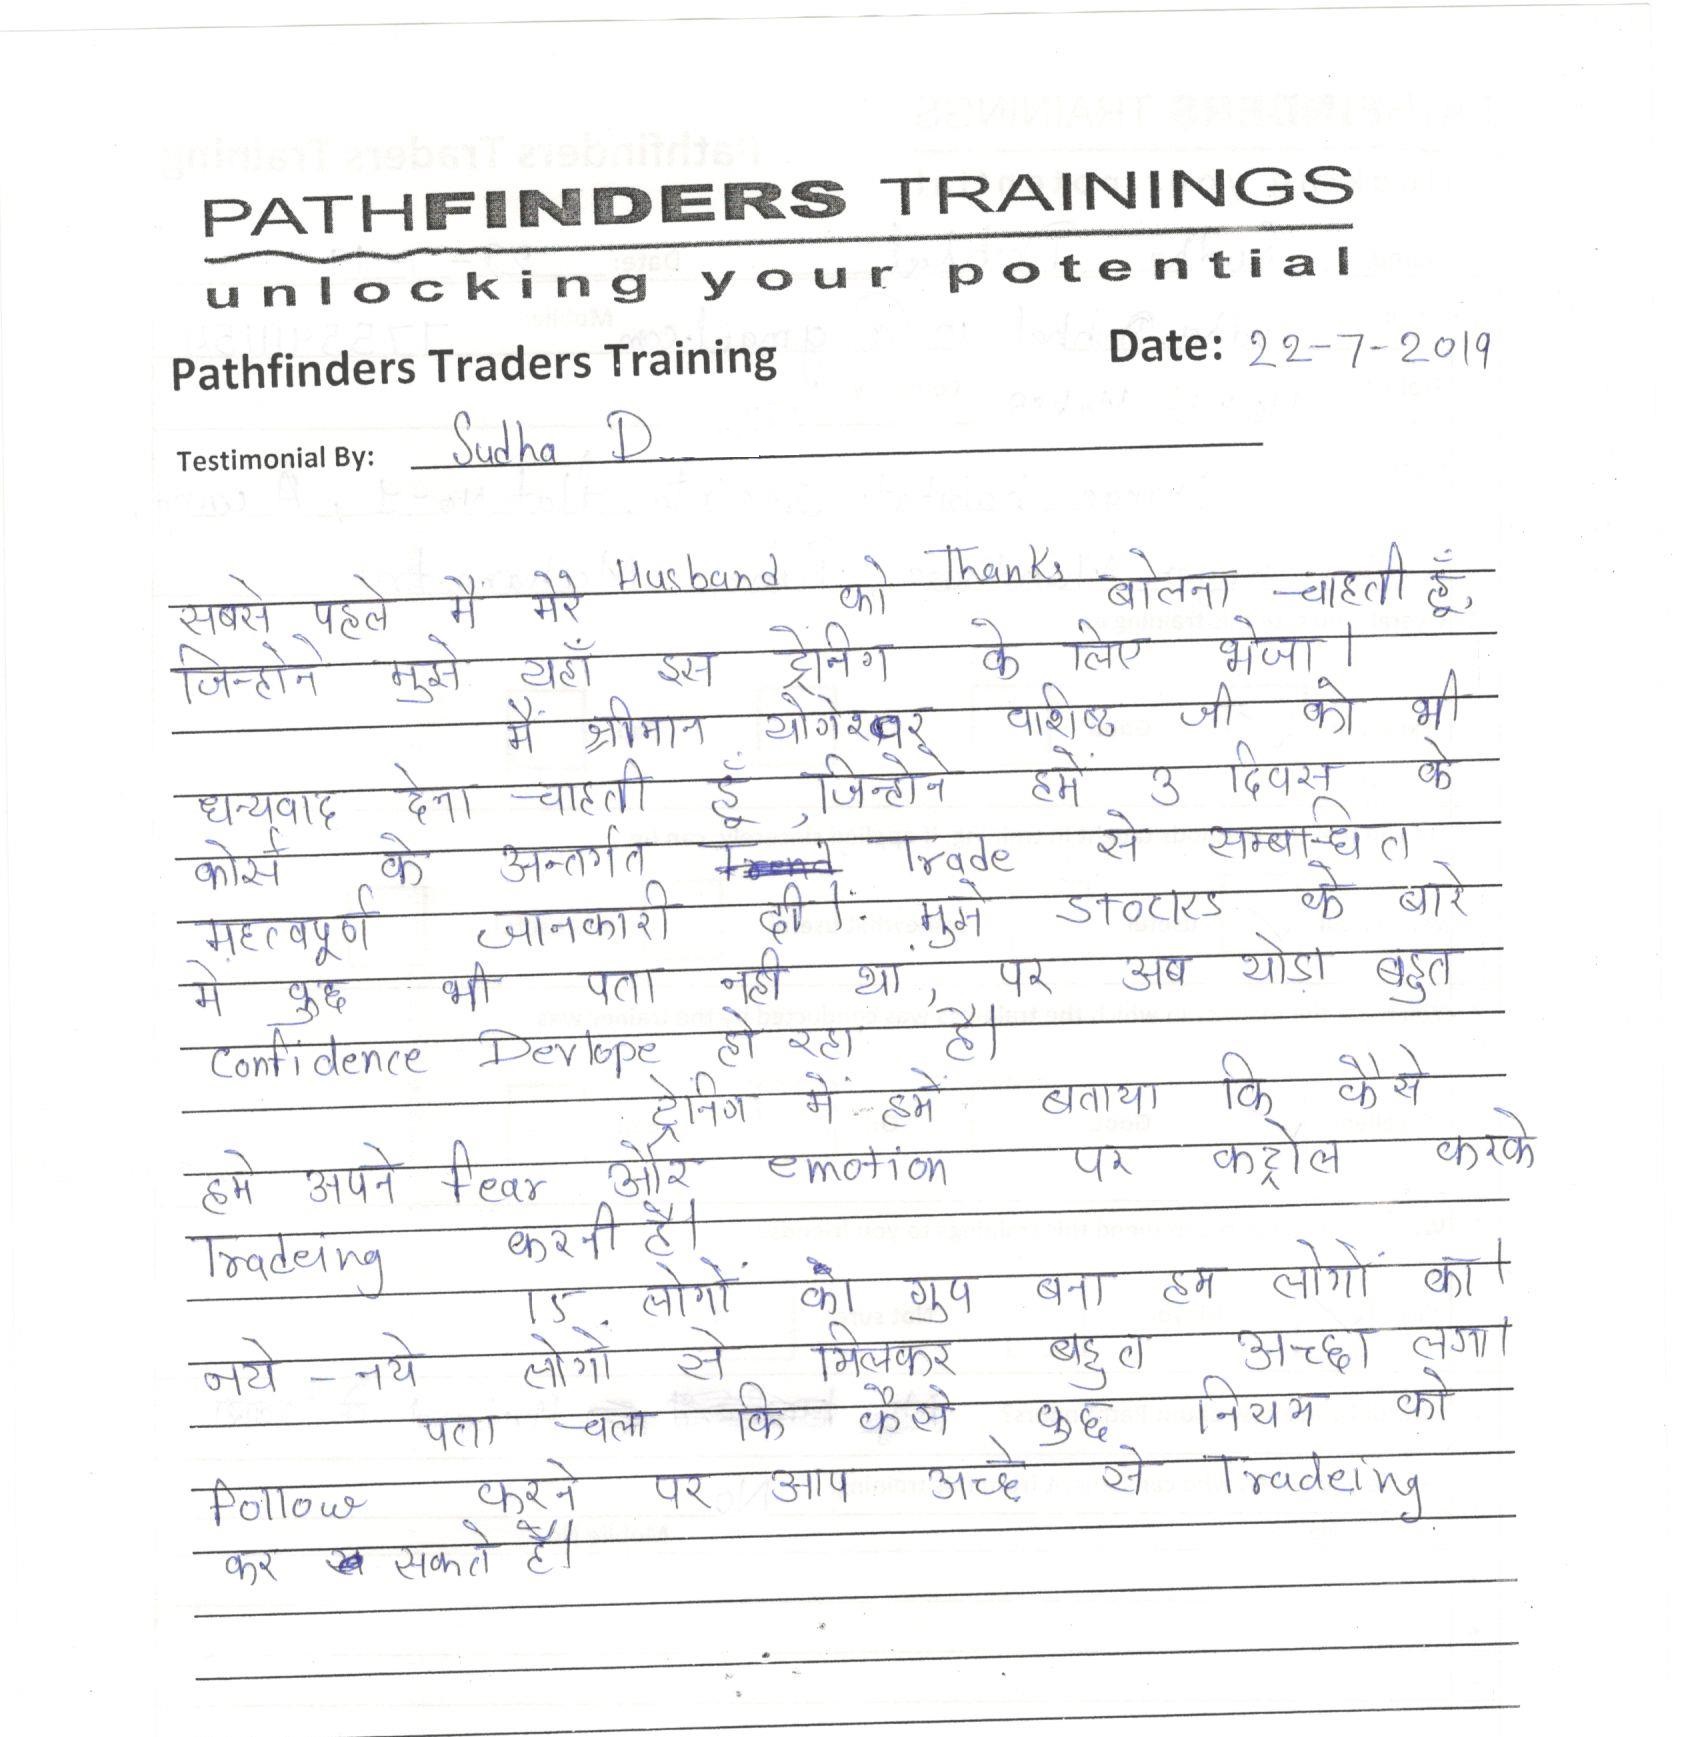 PATHFINDERS TRAININGS
unlocking your potential
Pathfinders Traders Training Date: 22-7-2019
Testimonial By: Sudha D
सबसे पहले मैं मेरे Husband को Thanks बोलना चाहती हूँ,
जिन्होने मुझे यहाँ इस ट्रेनिंग के लिए भेजा।
मैं श्रीमान योगेश्वर वाशिष्ठ जी को भी
धन्यवाद देना चाहती हूँ, जिन्होने हमें 3 दिवस के
कोर्स के अन्तर्गत Trade से सम्बन्धित
महत्वपूर्ण जानकारी दी। मुझे STOCKS के बारे
मे कुछ भी पता नही था, पर अब थोड़ा बहुत
Confidence Devlope हो रहा है।
ट्रेनिंग में हमें बताया कि कैसे
हमे अपने fear और emotion पर कट्रोल करके
Tradeing करनी है।
15 लोगों का ग्रुप बना हम लोगों का।
नये - नये लोगों से मिलकर बहुत अच्छा लगा।
पता चला कि कैसे कुछ नियम को
follow करने पर आप अच्छे से Tradeing
कर सकते हैं।